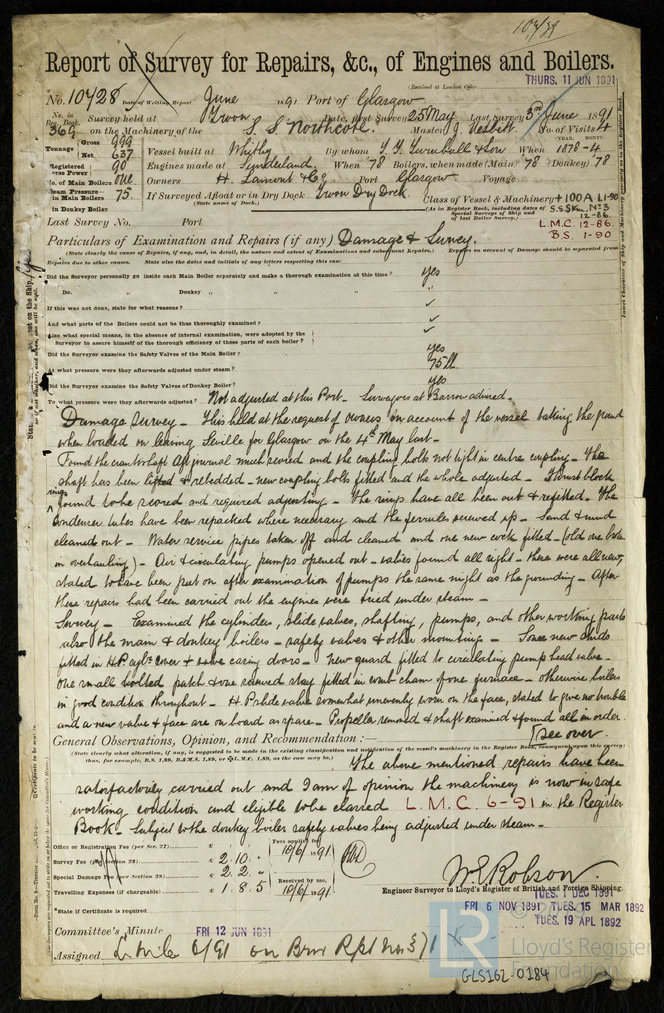 10428
Report of Survey for Repairs, &c., of Engines and Boilers.
(Received at London Office THURS. 11 JUN 1891
No. 10428 Date of Writing Report June 1891 Port of Glasgow
No. in Reg. Book. 369 Survey held at Troon Date, First Survey 25 May Last Survey 5th June 1891
on the Machinery of the S. S. Northcote. Master J. Nesbitt No. of Visits 4
Tonnage Gross 999 Net 637 Vessel built at Whitby By whom T. Turnbull & Son When 1878-4
Registered Horse Power 90 Engines made at Sunderland When '78 Boilers, when made (Main) '78 (Donkey) '78
No. of Main Boilers one Owners H. Lamont & Co Port Glasgow Voyage
Steam Pressure in Main Boilers 75 If Surveyed Afloat or in Dry Dock Troon Dry Dock Class of Vessel & Machinery +100A1 1-90
(State name of Dock.) (As in Register Book, including dates of Special Surveys of Ship and of last Boiler Survey.) S.S.Sun. No 3 12-86.
in Donkey Boiler L.M.C. 12-86
Last Survey No. Port B.S. 1-90
Particulars of Examination and Repairs (if any) Damage & Survey.
(State clearly the cause of Repairs, if any, and, in detail, the nature and extent of Examinations and subsequent Repairs.) Repairs on account of Damage should be separated from
Repairs due to other causes. State also the dates and initials of any letters respecting this case:
Did the Surveyor personally go inside each Main Boiler separately and make a thorough examination at this time? yes
Do. " Donkey " " " yes
If this was not done, state for what reasons?
And what parts of the Boilers could not be thus thoroughly examined?
Also what special means, in the absence of internal examination, were adopted by the
Surveyor to assure himself of the thorough efficiency of those parts of each boiler?
Did the Surveyor examine the Safety Valves of the Main Boiler? yes
At what pressure were they afterwards adjusted under steam? 75 lb.
Did the Surveyor examine the Safety Valves of Donkey Boiler? yes
To what pressure were they afterwards adjusted? Not adjusted at this Port. Surveyors at Barrow advised.
Damage Survey - This held at the request of owners on account of the vessel taking the ground
when loaded on leaving Seville for Glasgow on the 4th May last -
Found the crankshaft aft journal much scored and the coupling bolts not tight in centre coupling - The
shaft has been lifted & rebedded - new coupling bolts fitted and the whole adjusted - Thrust block
rings found to be scored and required adjusting - The rings have all been out & refitted. The
Condenser tubes have been repacked where necessary and the ferrules screwed up - Sand & mud
cleaned out - Water service pipes taken off and cleaned and one new cock fitted (old one broke
in overhauling) - Air & circulating pumps opened out - valves found all right - these were all new,
stated to have been put on after examination of pumps the same night as the grounding - After
these repairs had been carried out the engines were tried under steam -
Survey - Examined the cylinder, slide valves, shafting, pumps, and other working parts
also the main & donkey boilers - safety valves & other mounting - Some new studs
fitted in H.P. cylr cover & valve casing doors - New guard fitted to circulating pump head valve -
One small bolted patch & one screwed stay fitted in comb cham of one furnace - otherwise boilers
in good condition throughout - H.P. slide valve somewhat unevenly worn on the face, stated to give no trouble
and a new valve & face are on board as spare - Propeller removed & shaft examined & found all in order.
See over.
General Observations, Opinion, and Recommendation:—
(State clearly what alteration, if any, is suggested to be made in the existing classification and notification of the vessel's machinery in the Register Book, consequent upon this survey;
thus, for example, B.S. 1.89, B.&M.S. 1.89, or L.M.C. 1.89, as the case may be.)
The above mentioned repairs have been
satisfactorily carried out and I am of opinion the machinery is now in safe
working condition and eligible to be classed L.M.C. 6-91 in the Register
Book - Subject to the donkey boiler safety valves being adjusted under steam -
Office or Registration Fee (per Sec. 27) £ : : Fees applied for 10/6/1891
Survey Fee (per Section 28) £ 2 : 10 :
Special Damage Fee (per Section 28) £ 2 : 2 : Received by me,
Travelling Expenses (if chargeable) £ 1 : 8 : 5 10/6/1891
W.E. Robson.
Engineer Surveyor to Lloyd's Register of British and Foreign Shipping.
*State if Certificate is required
TUES. 1 DEC 1891
FRI 6 NOV 1891 TUES. 15 MAR 1892
TUES. 19 APL 1892
Committee's Minute FRI 12 JUN 1891
Assigned
LR
Lloyd's Register
Foundation
GLS162-0184